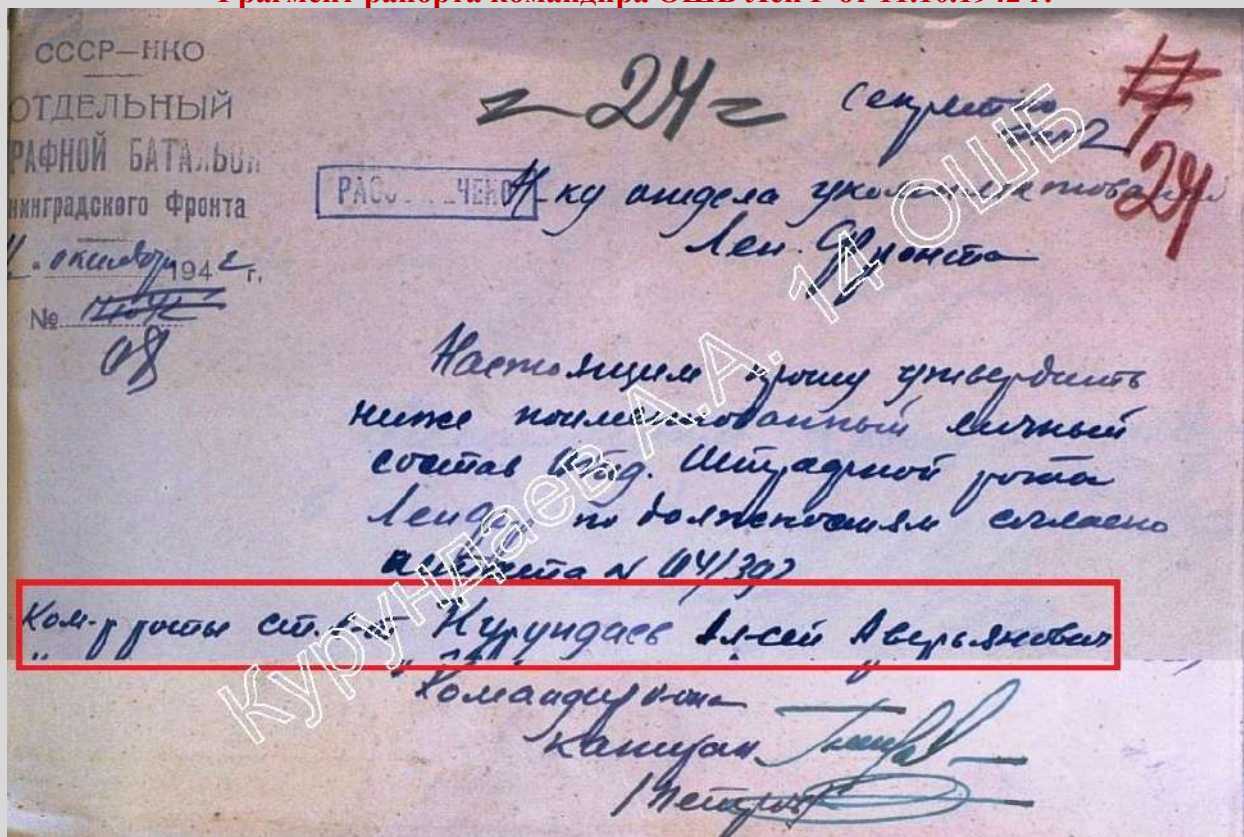 Фрагмент рапорта командира ОШБ ЛенФ от 11.10.1942 г.
СССР—НКО
ОТДЕЛЬНЫЙ
РАФНОЙ БАТАЛЬОН
нинградского Фронта
11. октября 1942 г.
№
08
24
Секретно
экз 2
24
РАСС ЧЕНО
Н-ку отдела укомплектования
Лен. Фронта
Настоящим прошу утвердить
ниже поименованный личный
состав Отд. Штрафной рота
ЛенФр по должностям согласно
штата N 04/392
Ком-р роты ст. л-т Курундаев Ал-сей Аверьянович
Командир б-на
капитан
/Петров/
Курундаев А.А. 14 ОШБ